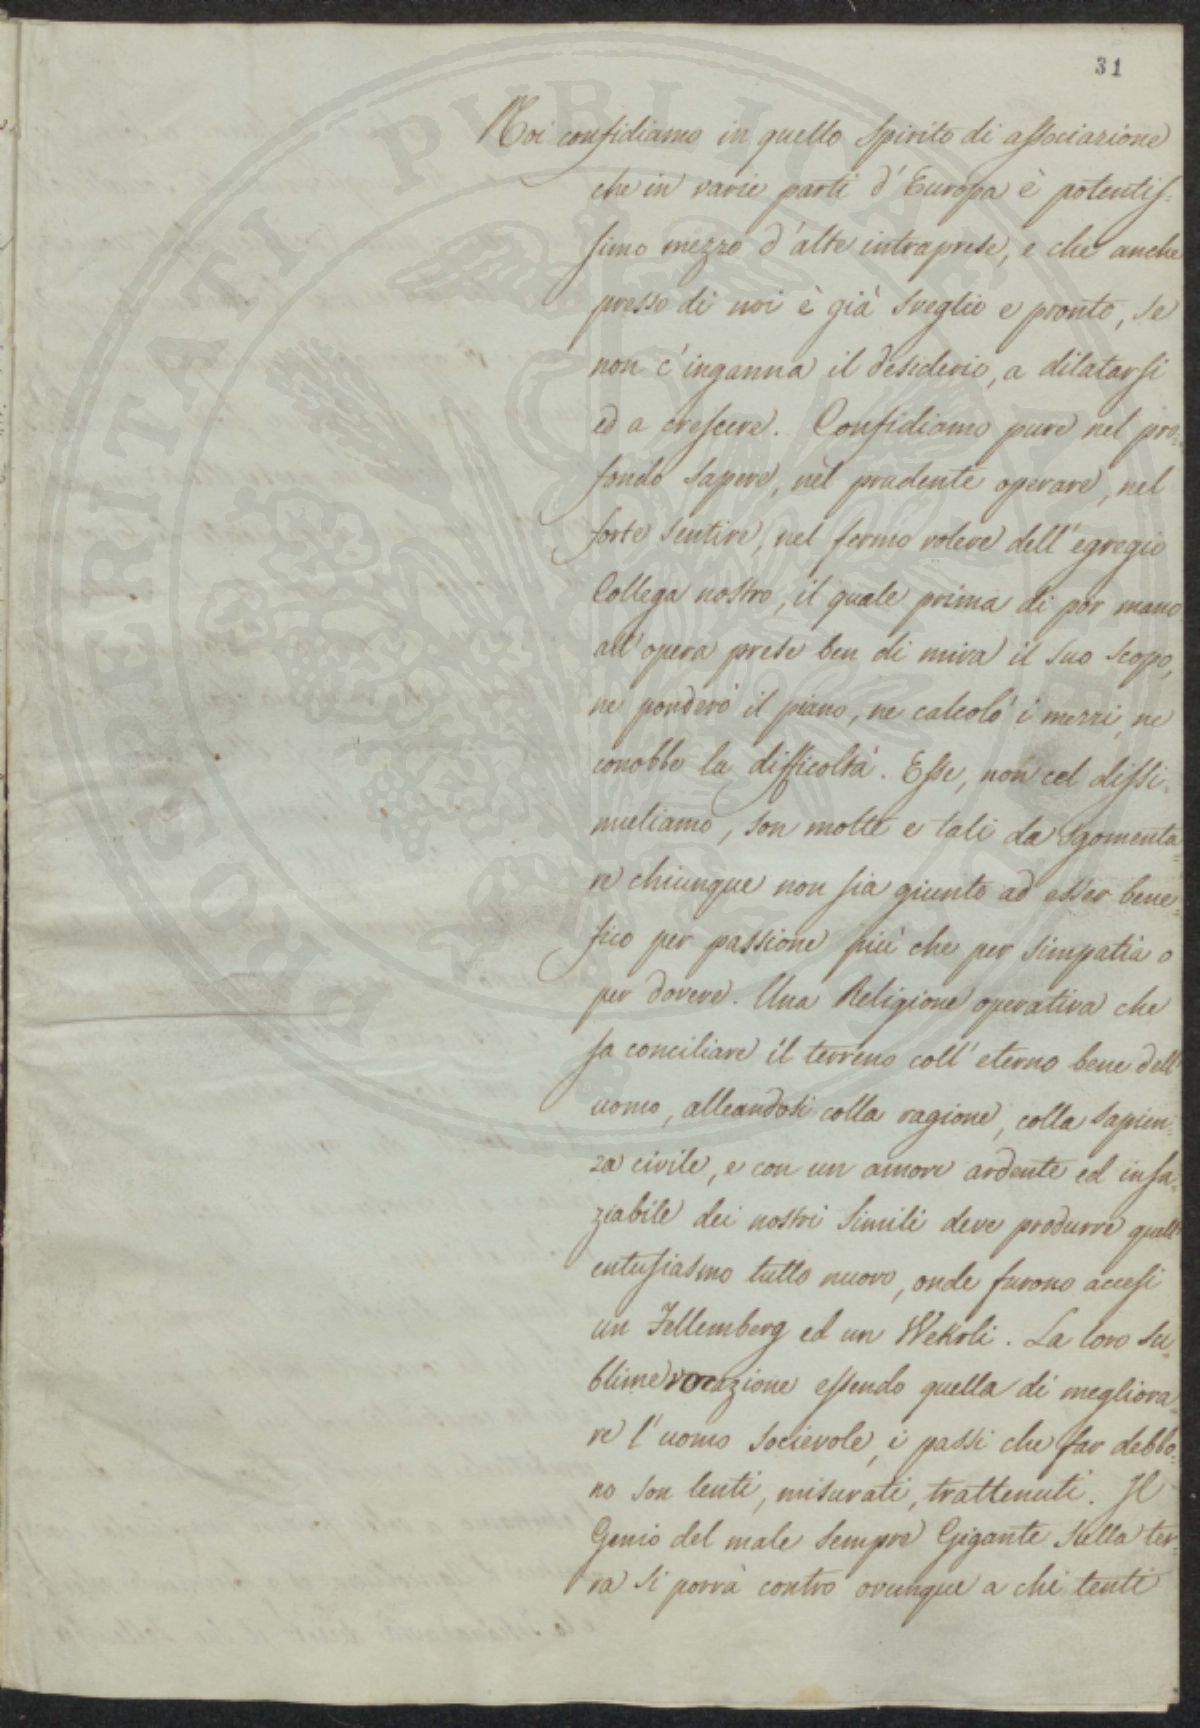 31
Noi confidiamo in quello spirito di associazione
che in varie parti d'Europa è potentis=
simo mezzo d'alte intraprese, e che anche
presso di noi è già sveglio e pronto, se
non c'inganna il desiderio, a dilatarsi
ed a crescere. Confidiamo pure nel pro=
fondo sapere, nel prudente operare, nel
forte sentire, nel fermo volere dell'egregio
Collega nostro, il quale prima di por mano
all'opera prese ben di mira il suo scopo,
ne ponderò il piano, ne calcolò i mezzi, ne
conobbe la difficoltà. Esse, non cel dissi=
muliamo, son molte e tali da sgomenta=
re chiunque non sia giunto ad esser bene=
fico per passione più che per simpatia o
per dovere. Una Religione operativa che
sa conciliare il terreno coll'eterno bene dell'
uomo, alleandosi colla ragione, colla sapien=
za civile, e con un amore ardente ed insa=
ziabile dei nostri simili deve produrre quell'
entusiasmo tutto nuovo, onde furono accesi
un Fellemberg ed un Wekrli. La loro su=
blime vocazione essendo quella di megliora=
re l'uomo socievole, i passi che far debbo=
no son lenti, misurati, trattenuti. Il
Genio del male sempre Gigante sulla ter=
ra si porrà contro ovunque a chi tenti
PROSPERITATI PUBLICAE